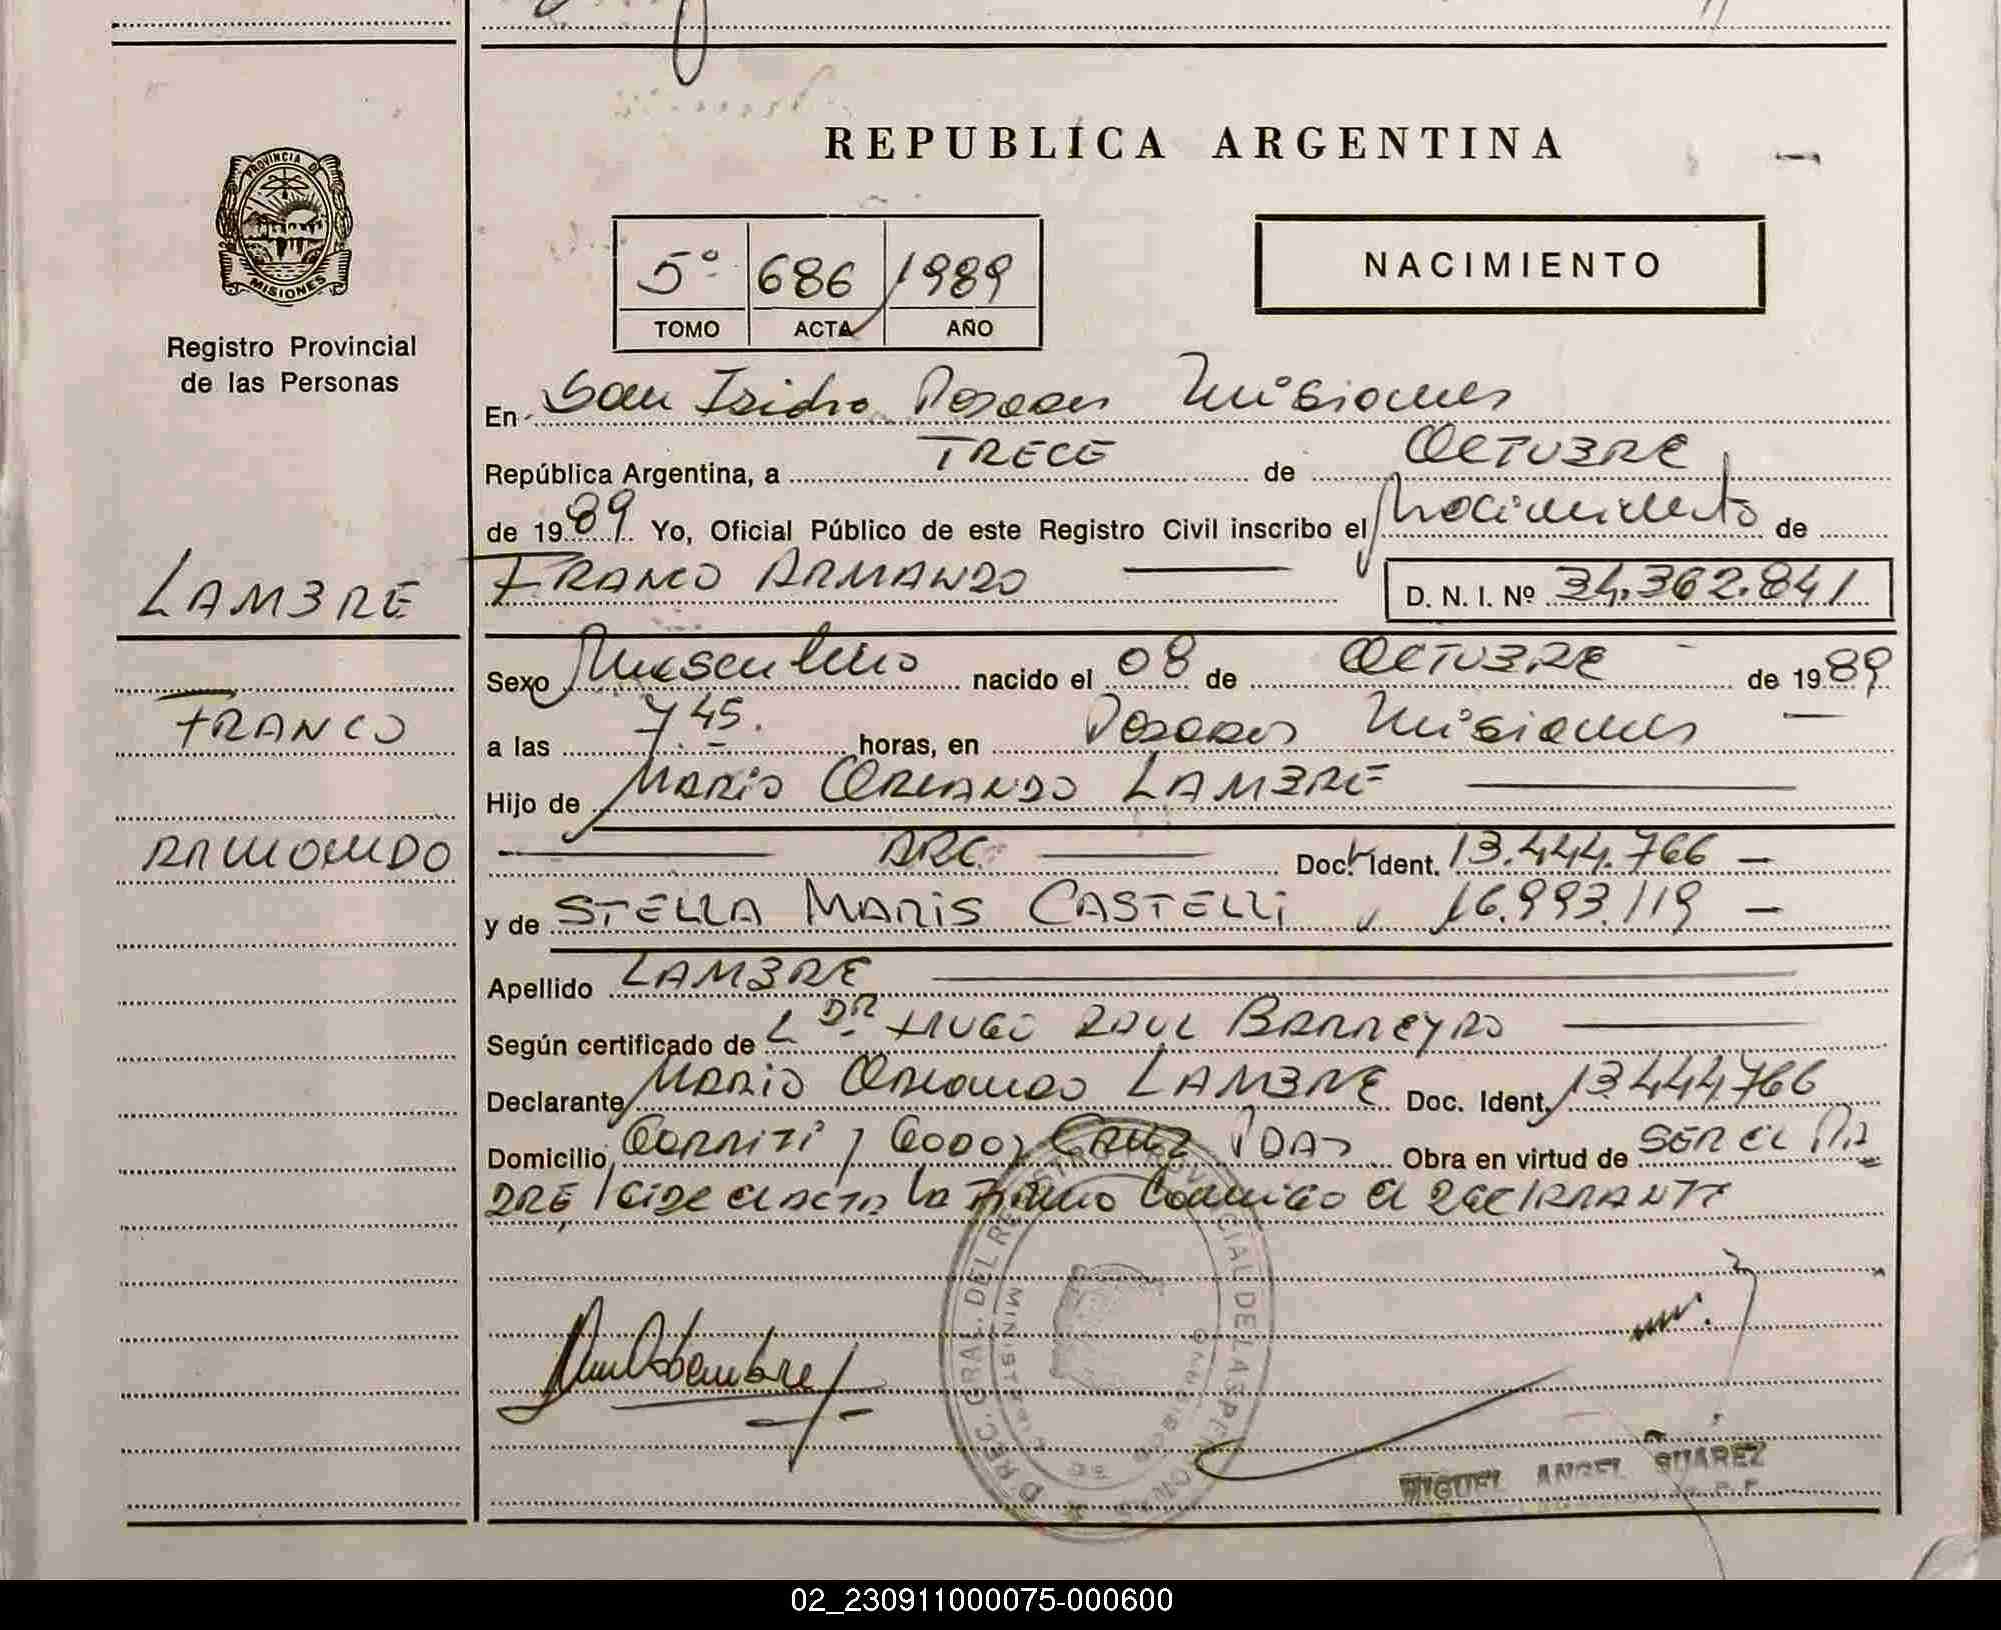 REPUBLICA ARGENTINA
PROVINCIA DE MISIONES
Registro Provincial
de las Personas
5º 686 1989
TOMO ACTA AÑO
NACIMIENTO
En San Isidro Posadas Misiones
República Argentina, a TRECE de OCTUBRE
de 1989 Yo, Oficial Público de este Registro Civil inscribo el Nacimiento de
LAMBRE
FRANCO ARMANDO D. N. I. Nº 34.362.841
Sexo Masculino nacido el 08 de OCTUBRE de 1989
FRANCO
a las 7 45. horas, en Posadas Misiones
Hijo de MARIO ORLANDO LAMBRE
ARMANDO
ARG. Doc. Ident. 13.444.766
y de STELLA MARIS CASTELLI 16.993.119
Apellido LAMBRE
Según certificado de L DR HUGO RAUL BARREYRO
Declarante MARIO ORLANDO LAMBRE Doc. Ident. 13.444.766
Domicilio Y GODOY CRUZ PDAS Obra en virtud de SER EL PA
DRE el ACTA la Firma Conmigo El DECLARANTE
MIGUEL ANGEL SUAREZ
02_230911000075-000600